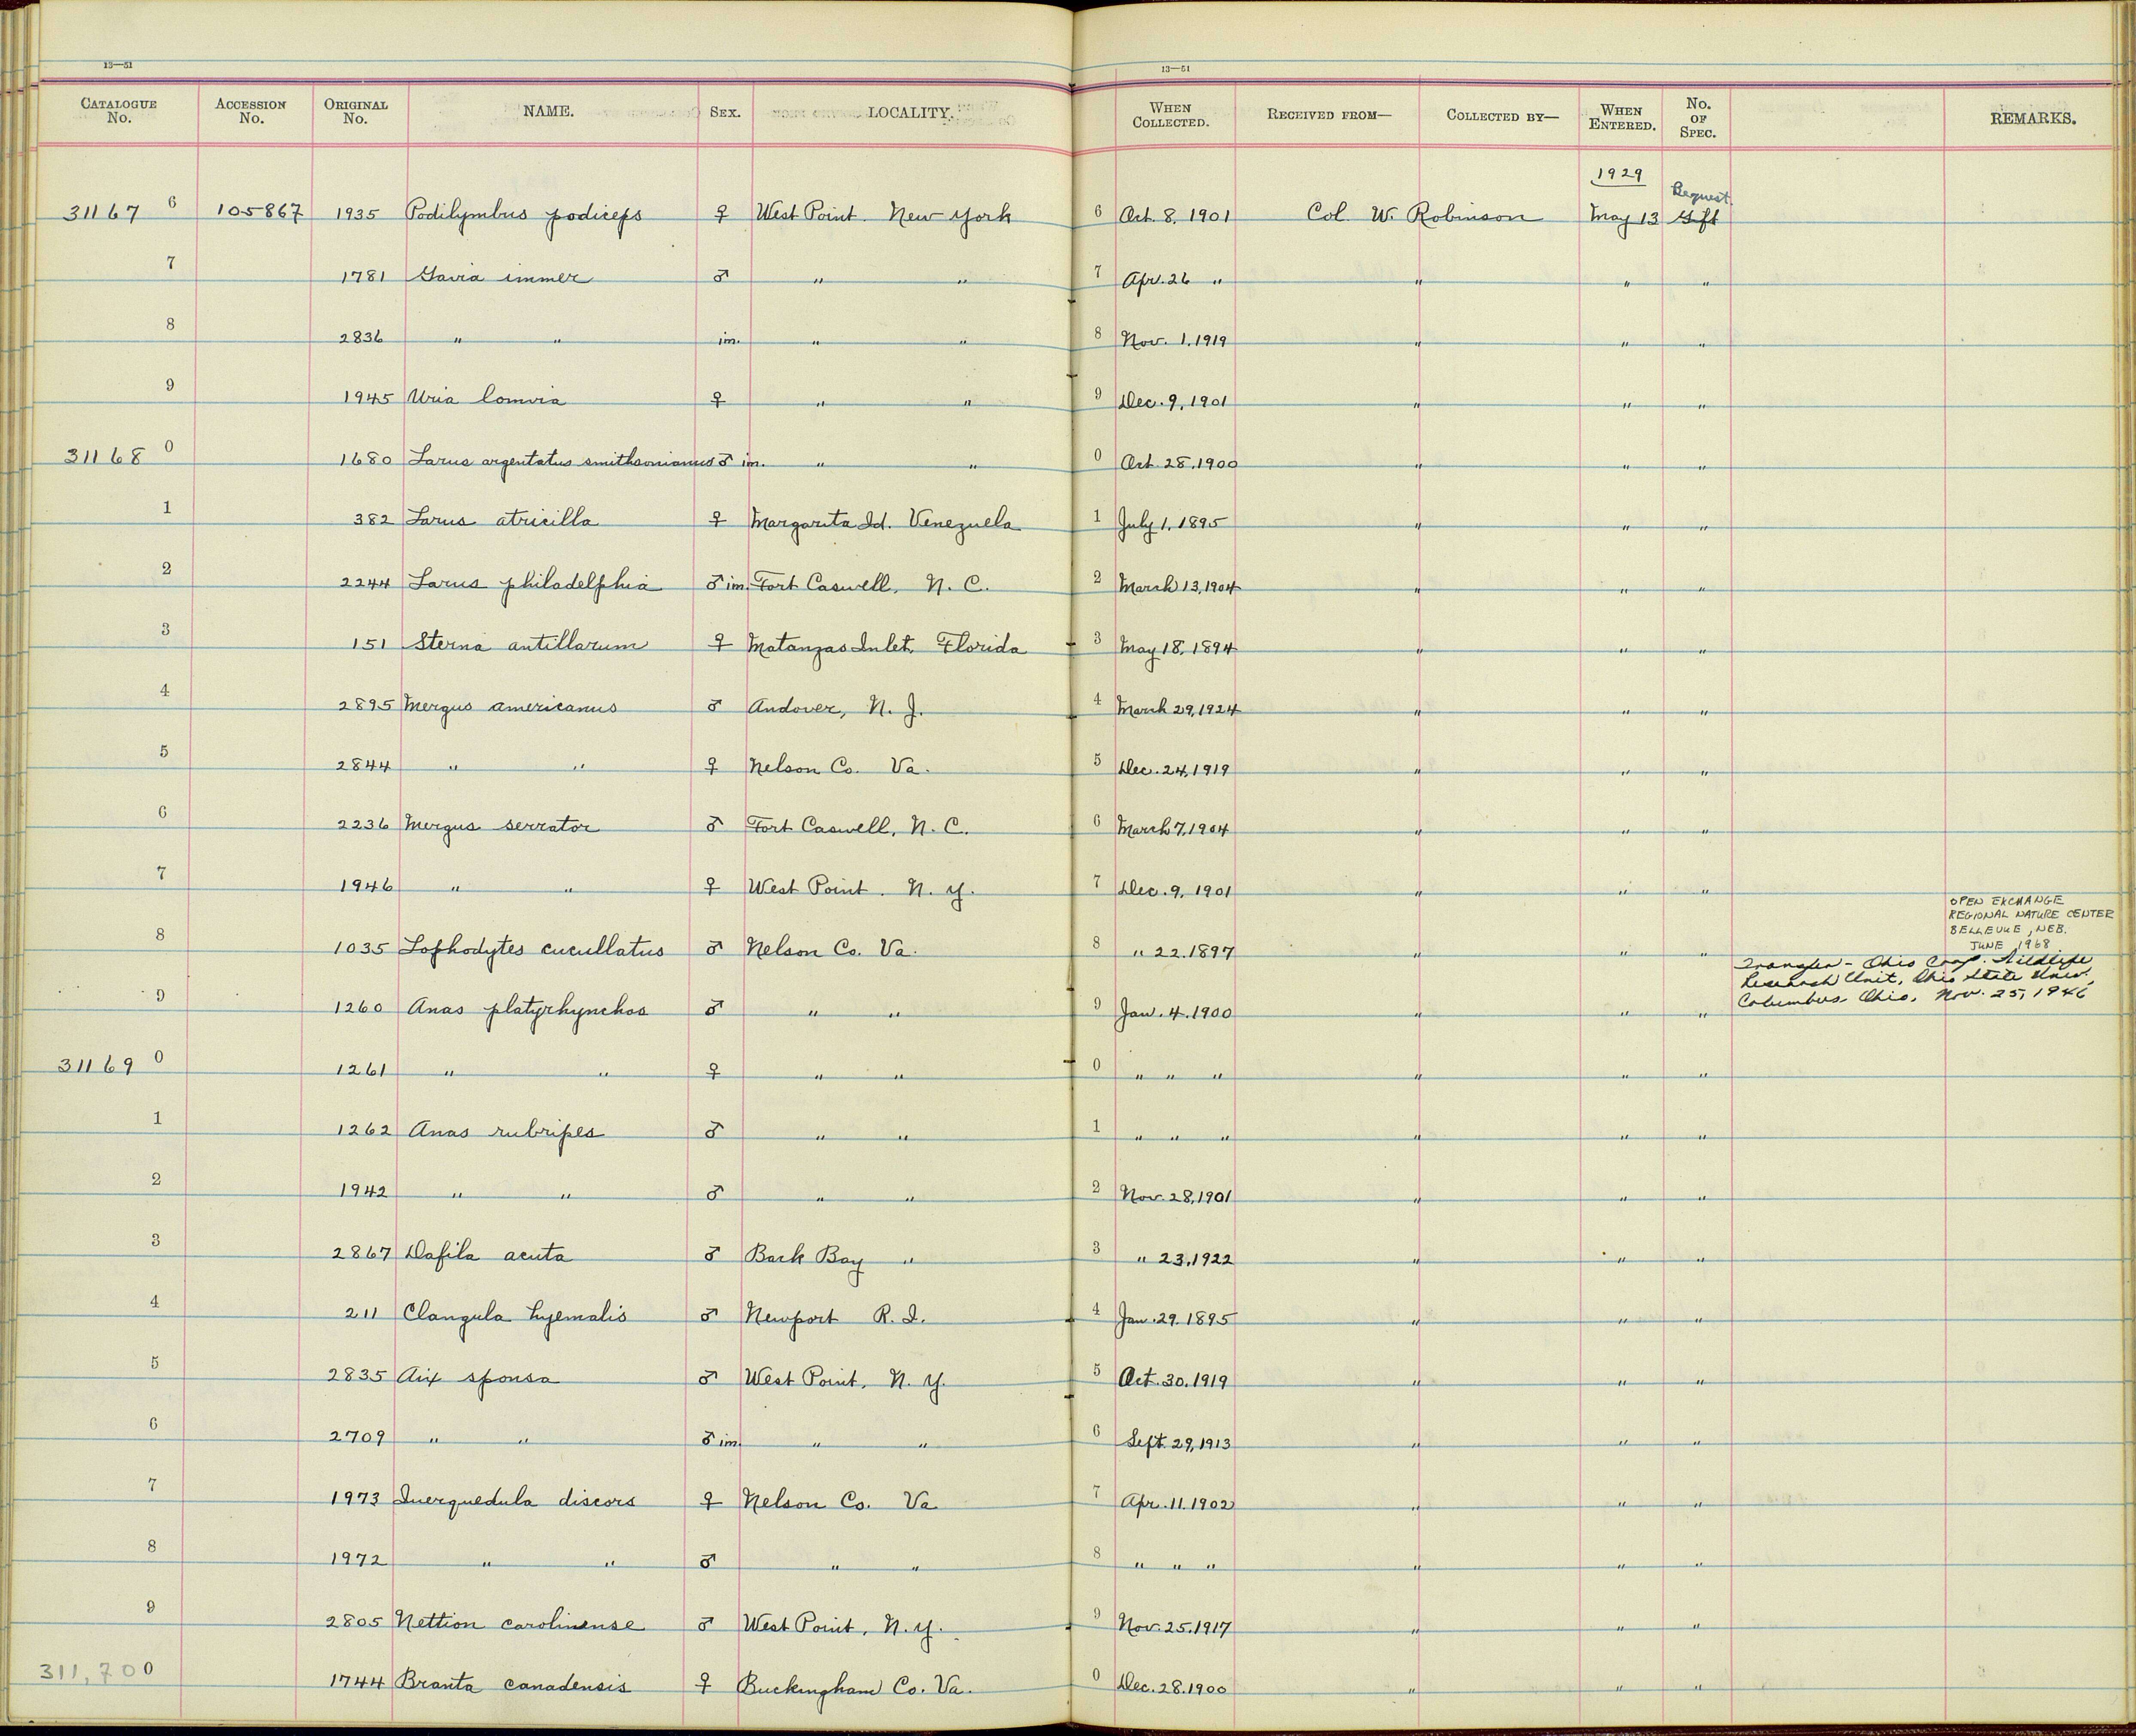 13—51 13—51
CATALOGUE No. ACCESSION No. ORIGINAL No. NAME. SEX. LOCALITY. WHEN COLLECTED. RECEIVED FROM— COLLECTED BY— WHEN ENTERED. No. OF SPEC. REMARKS.
1929
Bequest
31167 6 105867 1935 Podilymbus podiceps ♀ West Point. New York 6 Oct. 8, 1901 Col. W. Robinson May 13 Gift
7 1781 Gavia immer ♂ " " 7 Apr. 26 " " " "
8 2836 " " im. " " 8 Nov. 1, 1919 " " "
9 1945 Uria lomvia ♀ " " 9 Dec. 9, 1901 " " "
31168 0 1680 Larus argentatus smithsonianus ♂ im. " " 0 Oct. 28, 1900 " " "
1 382 Larus atricilla ♀ Margarita Id. Venezuela 1 July 1, 1895 " " "
2 2244 Larus philadelphia ♂ im. Fort Caswell, N. C. 2 March 13, 1904 " " "
3 151 Sterna antillarum ♀ Matanzas Inlet, Florida 3 May 18, 1894 " " "
4 2895 Mergus americanus ♂ Andover, N. J. 4 March 29, 1924 " " "
5 2844 " " ♀ Nelson Co. Va. 5 Dec. 24, 1919 " " "
6 2236 Mergus serrator ♂ Fort Caswell, N. C. 6 March 7, 1904 " " "
7 1946 " " ♀ West Point. N. Y. 7 Dec. 9, 1901 " " "
OPEN EXCHANGE
REGIONAL NATURE CENTER
BELLEVUE, NEB.
JUNE, 1968
8 1035 Lophodytes cucullatus ♂ Nelson Co. Va. 8 " 22. 1897 " " "
Transfer - Ohio Coop. Wildlife
Research Unit, Ohio State Univ.
Columbus, Ohio, Nov. 25, 1946
9 1260 Anas platyrhynchos ♂ " " 9 Jan. 4. 1900 " " "
31169 0 1261 " " ♀ " " 0 " " " " " "
1 1262 Anas rubripes ♂ " " 1 " " " " " "
2 1942 " " ♂ " " 2 Nov. 28, 1901 " " "
3 2867 Dafila acuta ♂ Back Bay " 3 " 23, 1922 " " "
4 211 Clangula hyemalis ♂ Newport R. I. 4 Jan. 29. 1895 " " "
5 2835 Aix sponsa ♂ West Point, N. Y. 5 Oct. 30. 1919 " " "
6 2709 " " ♂ im. " " 6 Sept. 29, 1913 " " "
7 1973 Querquedula discors ♀ Nelson Co. Va 7 Apr. 11. 1902 " " "
8 1972 " " ♂ " " 8 " " " " " "
9 2805 Nettion carolinense ♂ West Point, N. Y. 9 Nov. 25. 1917 " " "
311,700 1744 Branta canadensis ♀ Buckingham Co. Va. 0 Dec. 28. 1900 " " "